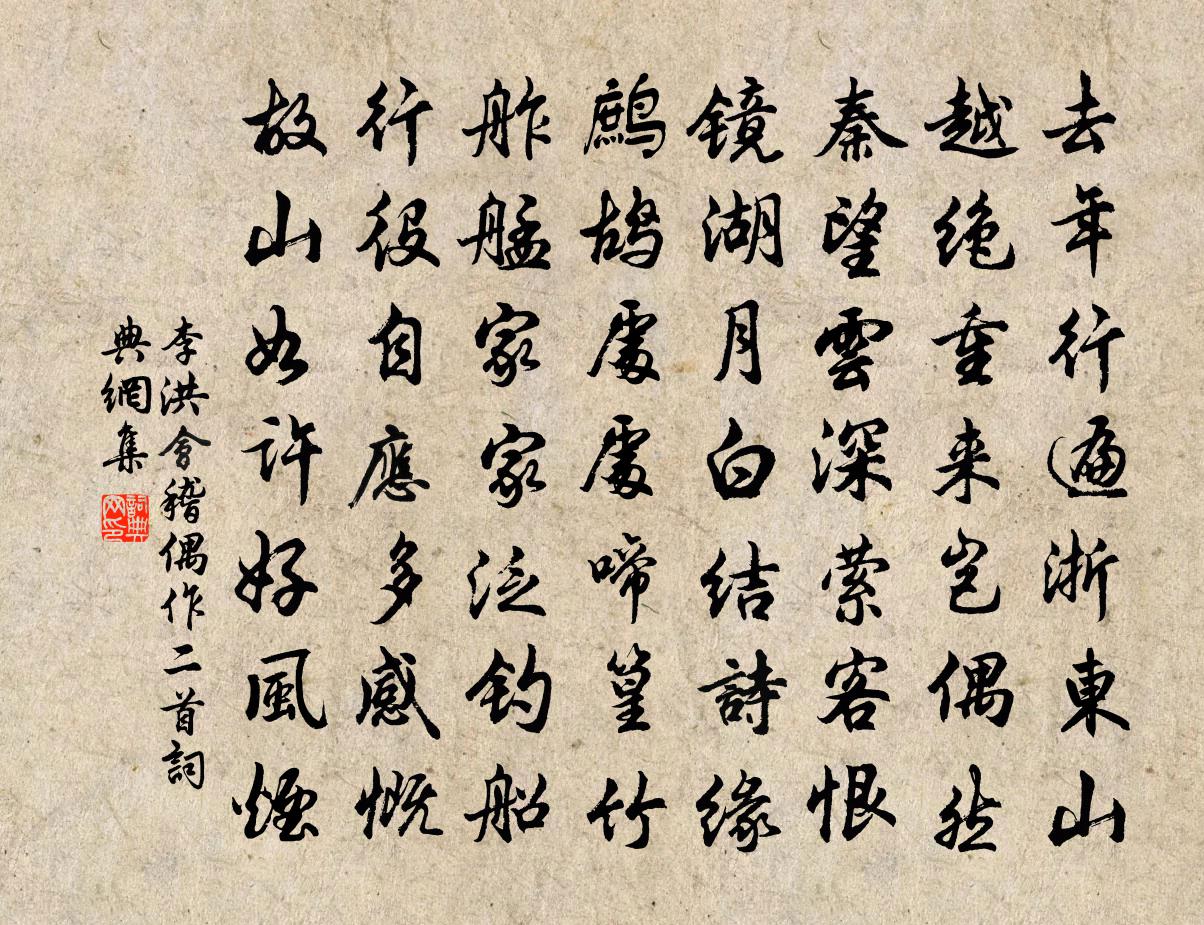 去年行遍浙東山
越絶重来豈偶然
秦望雲深縈客恨
鏡湖月白結詩緣
鷓鴣處處啼篁竹
舴艋家家泛釣船
行役自應多感慨
故山如許好風煙
李洪會稽偶作二首詞
典網集
詞典
网印